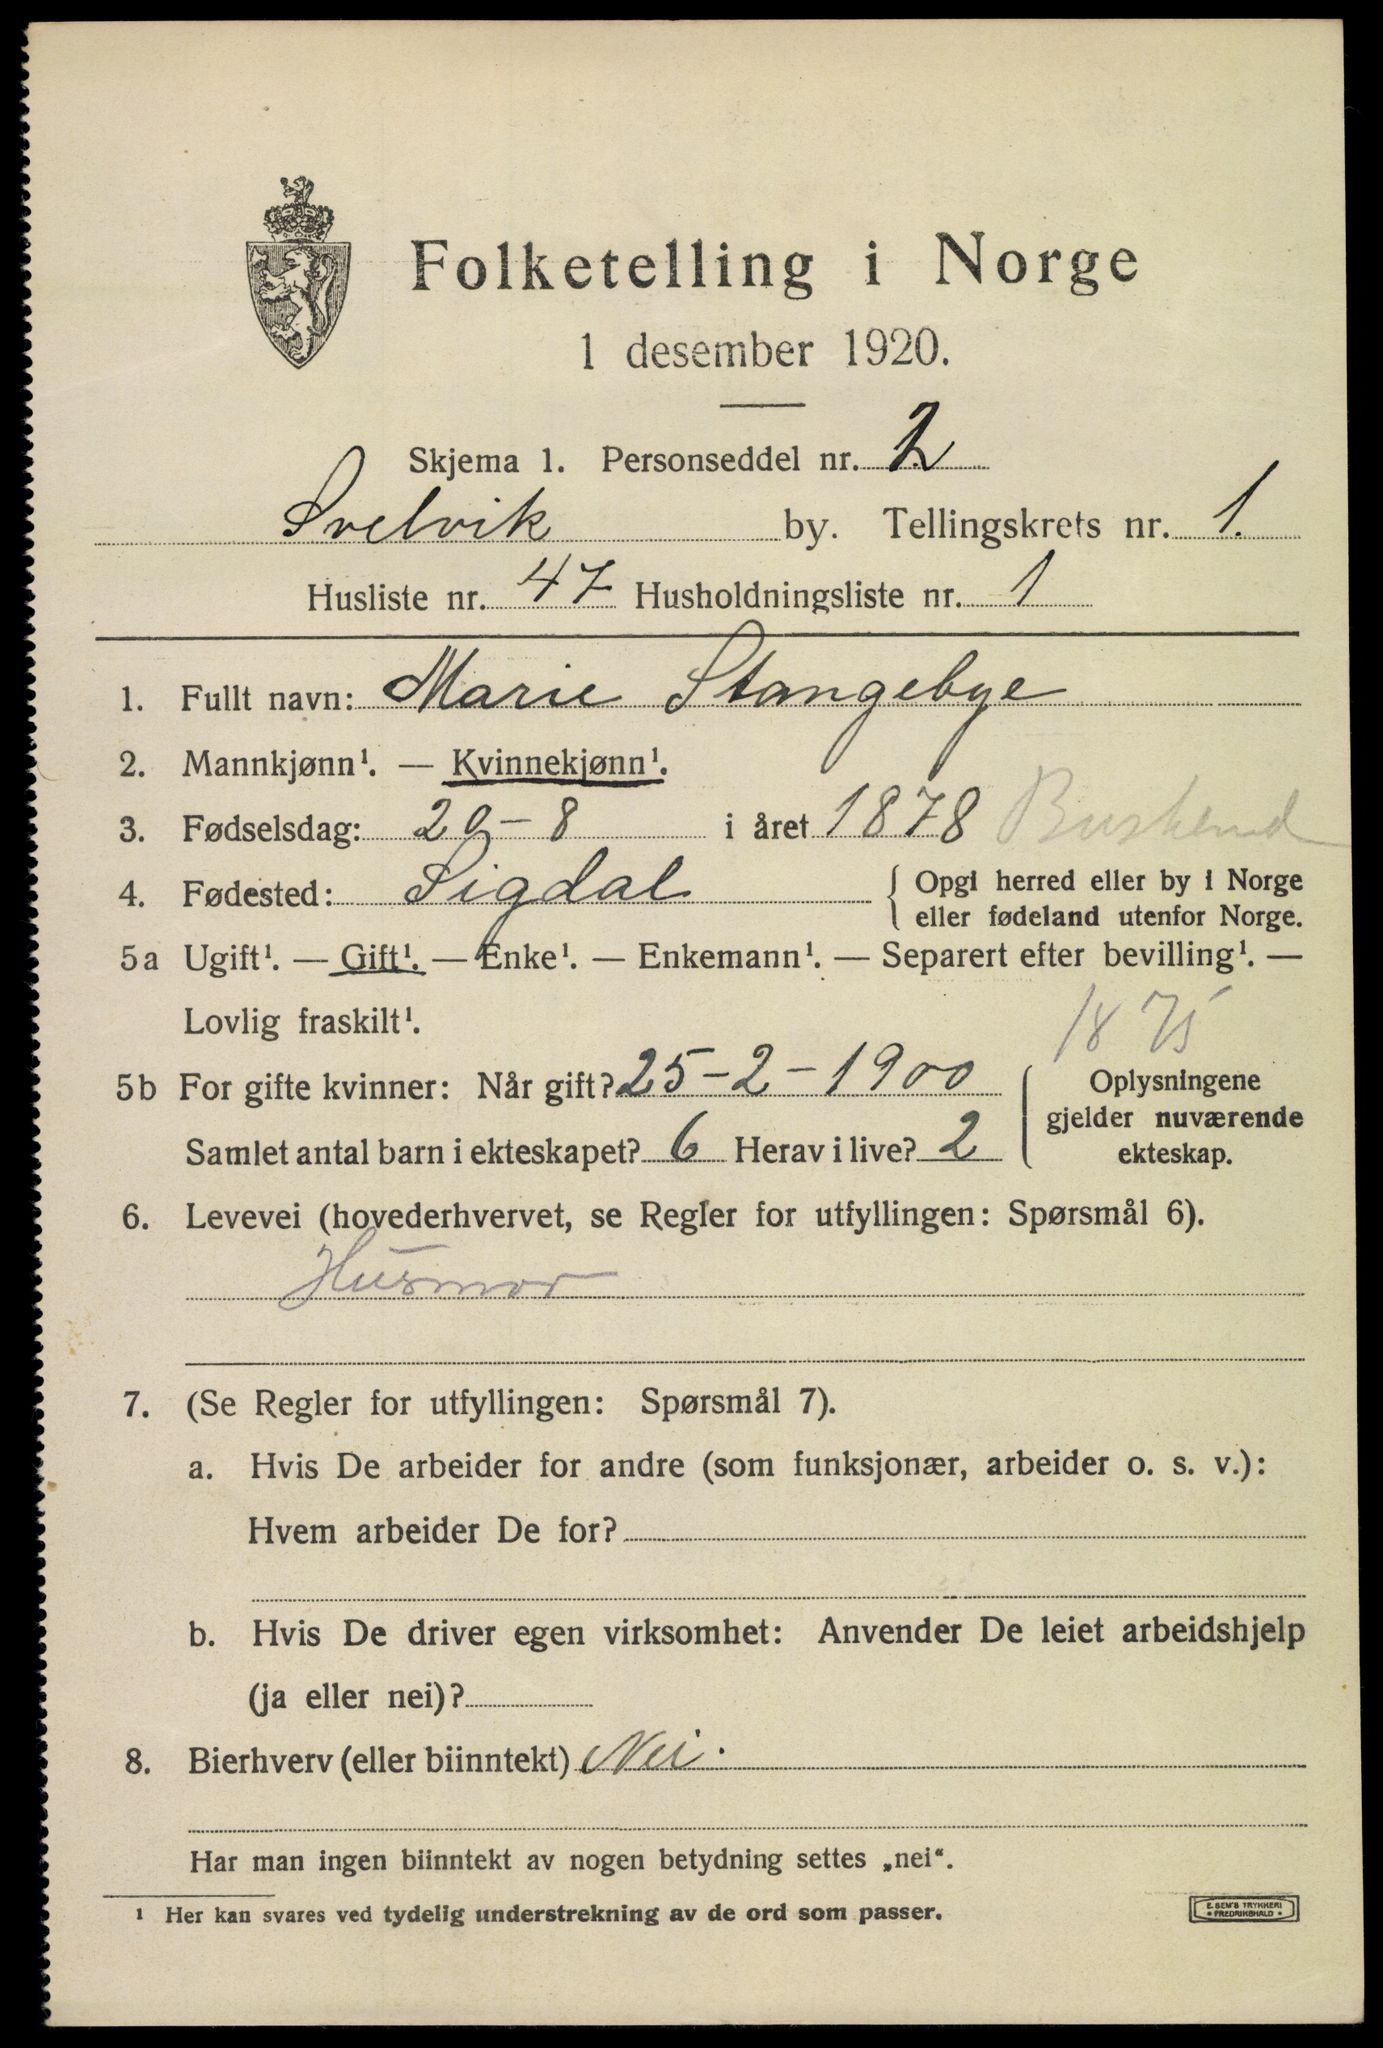 Folketelling i Norge
1 desember 1920.
Skjema 1. Personseddel nr. 2
Svelvik by. Tellingskrets nr. 1.
Husliste nr. 47 Husholdningsliste nr. 1
1. Fullt navn: Marie Stangebye
2. Mannkjønn¹. — Kvinnekjønn¹.
3. Fødselsdag: 29-8 i året 1878 Buskerud
4. Fødested: Sigdal { Opgi herred eller by i Norge
eller fødeland utenfor Norge.
5a Ugift¹. — Gift¹. — Enke¹. — Enkemann¹. — Separert efter bevilling¹. —
Lovlig fraskilt¹.
1875
5b For gifte kvinner: Når gift? 25-2-1900
Samlet antal barn i ekteskapet? 6 Herav i live? 2
Oplysningene
gjelder nuværende
ekteskap.
6. Levevei (hovederhvervet, se Regler for utfyllingen: Spørsmål 6).
Husmor
7. (Se Regler for utfyllingen: Spørsmål 7).
a. Hvis De arbeider for andre (som funksjonær, arbeider o. s. v.):
Hvem arbeider De for?
b. Hvis De driver egen virksomhet: Anvender De leiet arbeidshjelp
(ja eller nei)?
8. Bierhverv (eller biinntekt) Nei.
Har man ingen biinntekt av nogen betydning settes „nei“.
¹ Her kan svares ved tydelig understrekning av de ord som passer.
E. SEM'S TRYKKERI
FREDRIKSHALD